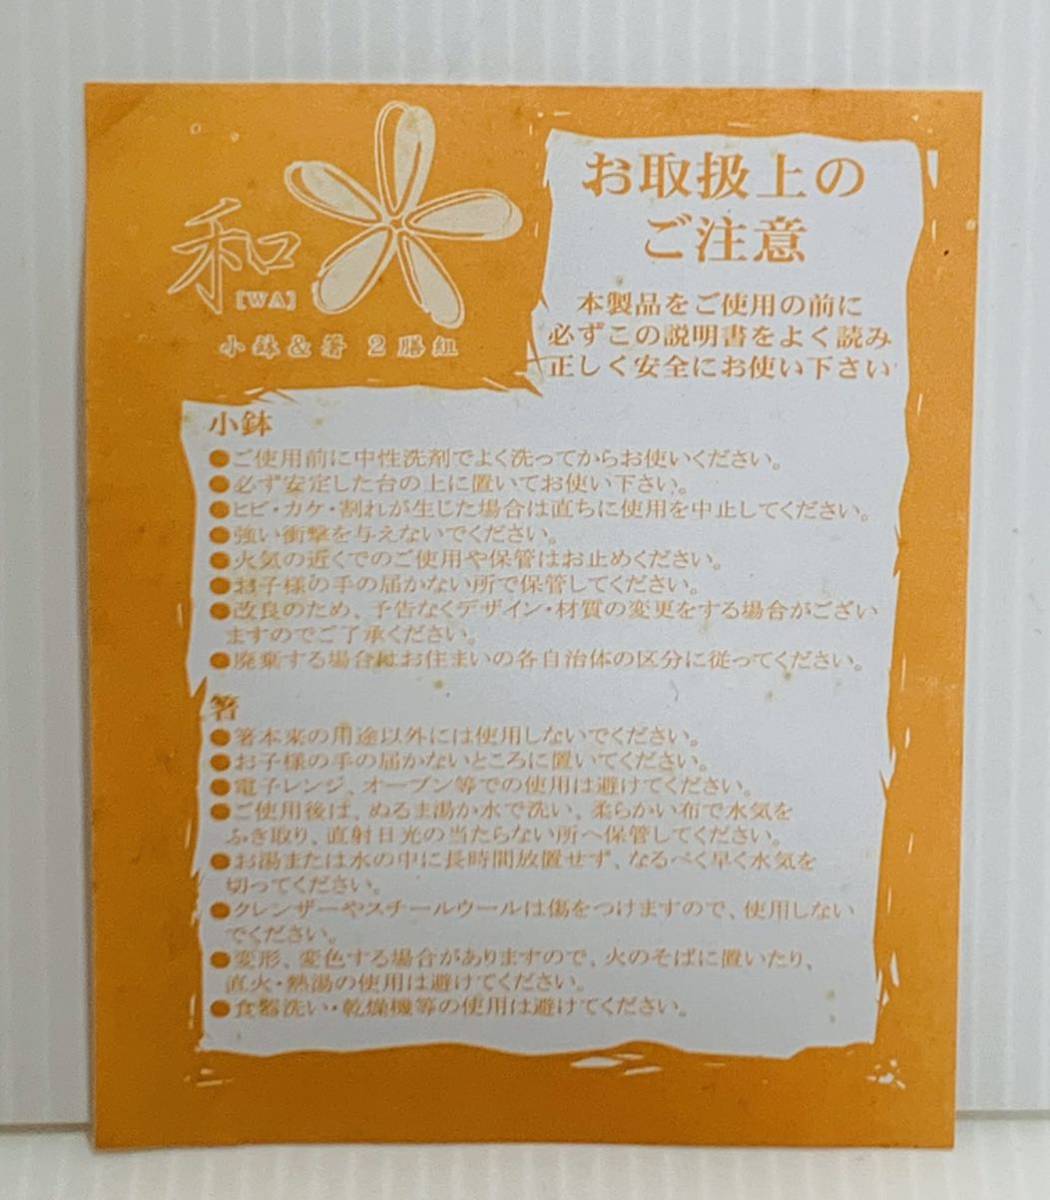 和
[WA]
小鉢&箸 2膳組
お取扱上の
ご注意
本製品をご使用の前に
必ずこの説明書をよく読み
正しく安全にお使い下さい
小鉢
●ご使用前に中性洗剤でよく洗ってからお使いください。
●必ず安定した台の上に置いてお使い下さい。
●ヒビ・カケ・割れが生じた場合は直ちに使用を中止してください。
●強い衝撃を与えないでください。
●火気の近くでのご使用や保管はお止めください。
●お子様の手の届かない所で保管してください。
●改良のため、予告なくデザイン・材質の変更をする場合がござい
ますのでご了承ください。
●廃棄する場合はお住まいの各自治体の区分に従ってください。
箸
●箸本来の用途以外には使用しないでください。
●お子様の手の届かないところに置いてください。
●電子レンジ、オーブン等での使用は避けてください。
●ご使用後は、ぬるま湯か水で洗い、柔らかい布で水気を
ふき取り、直射日光の当たらない所へ保管してください。
●お湯または水の中に長時間放置せず、なるべく早く水気を
切ってください。
●クレンザーやスチールウールは傷をつけますので、使用しない
でください。
●変形、変色する場合がありますので、火のそばに置いたり、
直火・熱湯の使用は避けてください。
●食器洗い・乾燥機等の使用は避けてください。